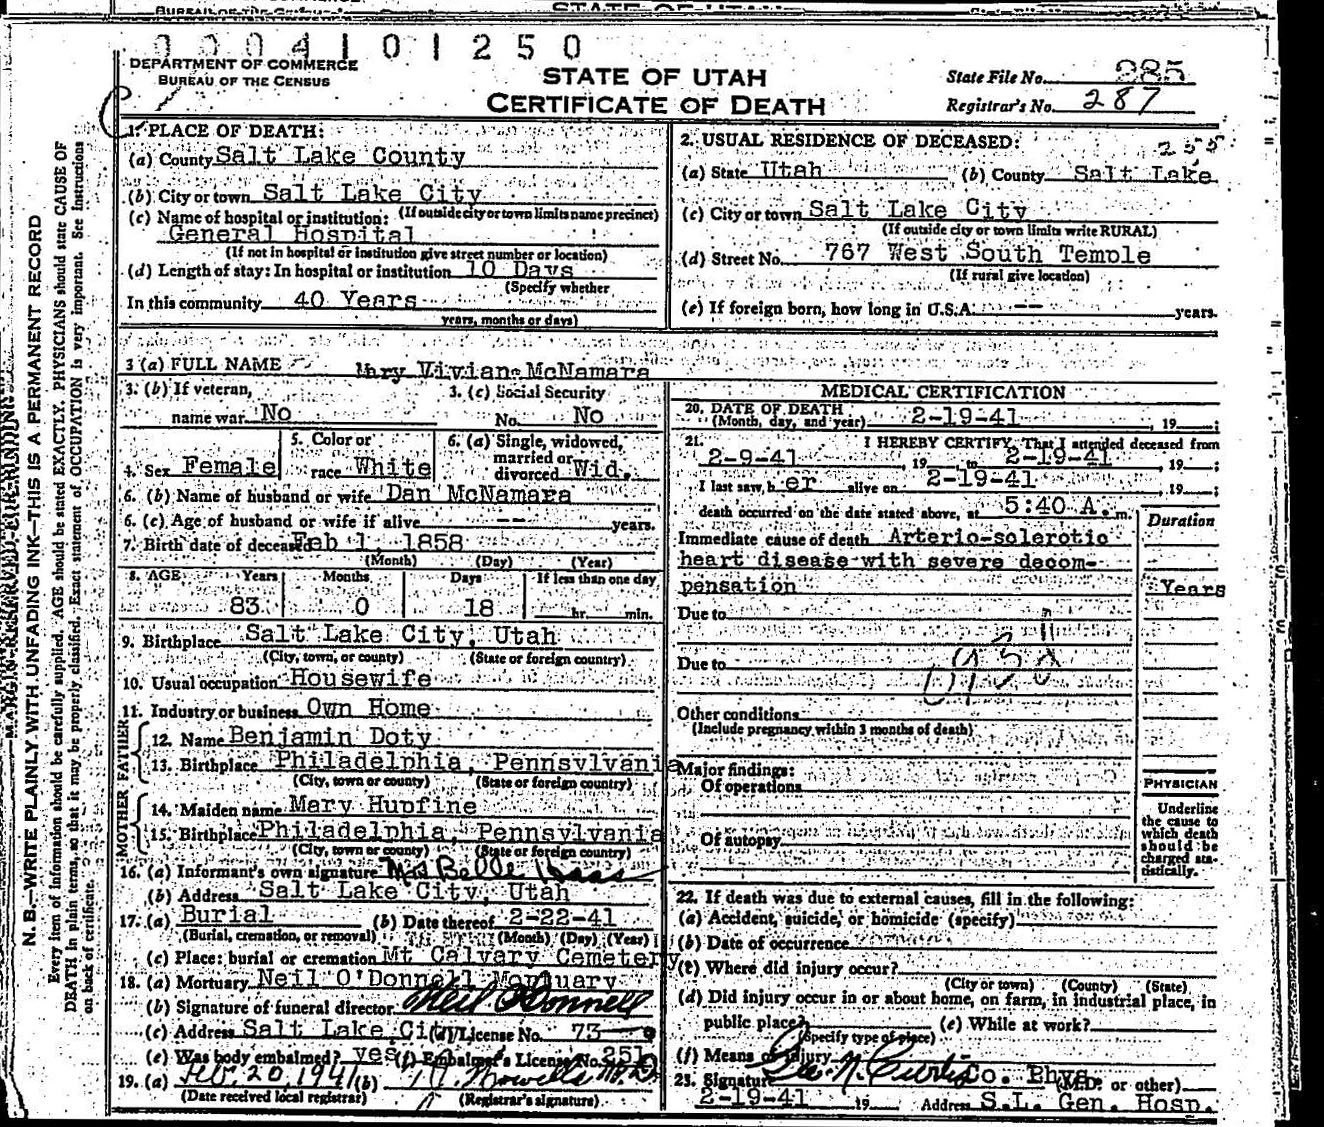 0004101250
DEPARTMENT OF COMMERCE
BUREAU OF THE CENSUS
STATE OF UTAH
CERTIFICATE OF DEATH
State File No. 285
Registrar's No. 287
1. PLACE OF DEATH:
(a) County Salt Lake County
(b) City or town Salt Lake City
(If outside city or town limits name precinct)
(c) Name of hospital or institution:
General Hospital
(If not in hospital or institution give street number or location)
(d) Length of stay: In hospital or institution 10 Days
(Specify whether
In this community 40 Years
years, months or days)
2. USUAL RESIDENCE OF DECEASED:
255
(a) State Utah (b) County Salt Lake
(c) City or town Salt Lake City
(If outside city or town limits write RURAL)
(d) Street No. 767 West South Temple
(If rural give location)
(e) If foreign born, how long in U.S.A. -- years.
3 (a) FULL NAME Mary Vivian McNamara
3. (b) If veteran, name war No
3. (c) Social Security No. No
4. Sex Female
5. Color or race White
6. (a) Single, widowed, married or divorced Wid.
6. (b) Name of husband or wife Dan McNamara
6. (c) Age of husband or wife if alive -- years.
7. Birth date of deceased Feb 1 1858
(Month) (Day) (Year)
8. AGE Years Months Days If less than one day
83 0 18 hr. min.
9. Birthplace Salt Lake City, Utah
(City, town, or county) (State or foreign country)
10. Usual occupation Housewife
11. Industry or business Own Home
FATHER
12. Name Benjamin Doty
13. Birthplace Philadelphia, Pennsylvania
(City, town or county) (State or foreign country)
MOTHER
14. Maiden name Mary Hupfine
15. Birthplace Philadelphia, Pennsylvania
(City, town or county) (State or foreign country)
16. (a) Informant's own signature Mrs Belle
(b) Address Salt Lake City, Utah
17. (a) Burial (b) Date thereof 2-22-41
(Burial, cremation, or removal) (Month) (Day) (Year)
(c) Place: burial or cremation Mt Calvary Cemetery
18. (a) Mortuary Neil O'Donnell Mortuary
(b) Signature of funeral director Neil O'Donnell
(c) Address Salt Lake City (d) License No. 73
(e) Was body embalmed? yes (f) Embalmer's License No. 251
19. (a) Feb. 20, 1941 (b) M.D.
(Date received local registrar) (Registrar's signature)
MEDICAL CERTIFICATION
20. DATE OF DEATH
(Month, day, and year) 2-19-41, 19
21. I HEREBY CERTIFY, That I attended deceased from
2-9-41, 19 to 2-19-41, 19 ;
I last saw h er alive on 2-19-41, 19 ;
death occurred on the date stated above, at 5:40 A. m.
Duration
Immediate cause of death Arterio-sclerotic
heart disease with severe decom-
pensation Years
Due to
Due to
Other conditions
(Include pregnancy within 3 months of death)
Major findings:
Of operations
Of autopsy
PHYSICIAN
Underline
the cause to
which death
should be
charged sta-
tistically.
22. If death was due to external causes, fill in the following:
(a) Accident, suicide, or homicide (specify)
(b) Date of occurrence
(c) Where did injury occur?
(City or town) (County) (State)
(d) Did injury occur in or about home, on farm, in industrial place, in
public place? (e) While at work?
(Specify type of place)
(f) Means of injury
23. Signature N. Curtis Co. Phys. (M.D. or other)
2-19-41 19 Address S.L. Gen. Hosp.
MARGIN RESERVED FOR BINDING
N. B.—WRITE PLAINLY WITH UNFADING INK—THIS IS A PERMANENT RECORD
Every item of information should be carefully supplied. AGE should be stated EXACTLY. PHYSICIANS should state CAUSE OF
DEATH in plain terms, so that it may be properly classified. Exact statement of OCCUPATION is very important. See instructions
on back of certificate.